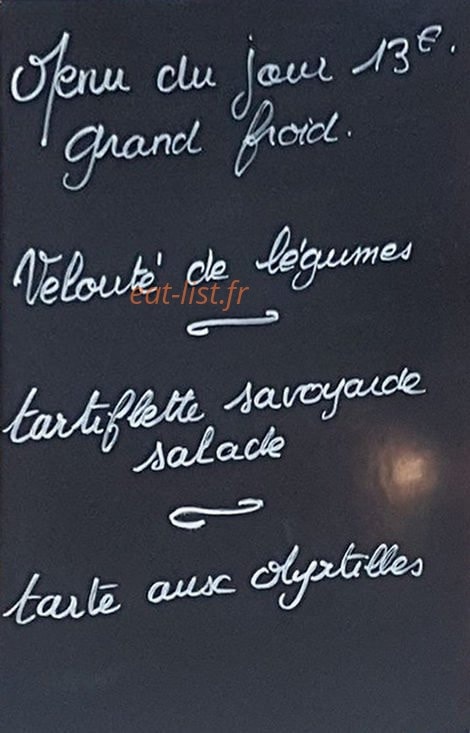 Menu du jour 13€.
grand froid.
Velouté de légumes
eat-list.fr
tartiflette savoyarde
salade
tarte aux Myrtilles